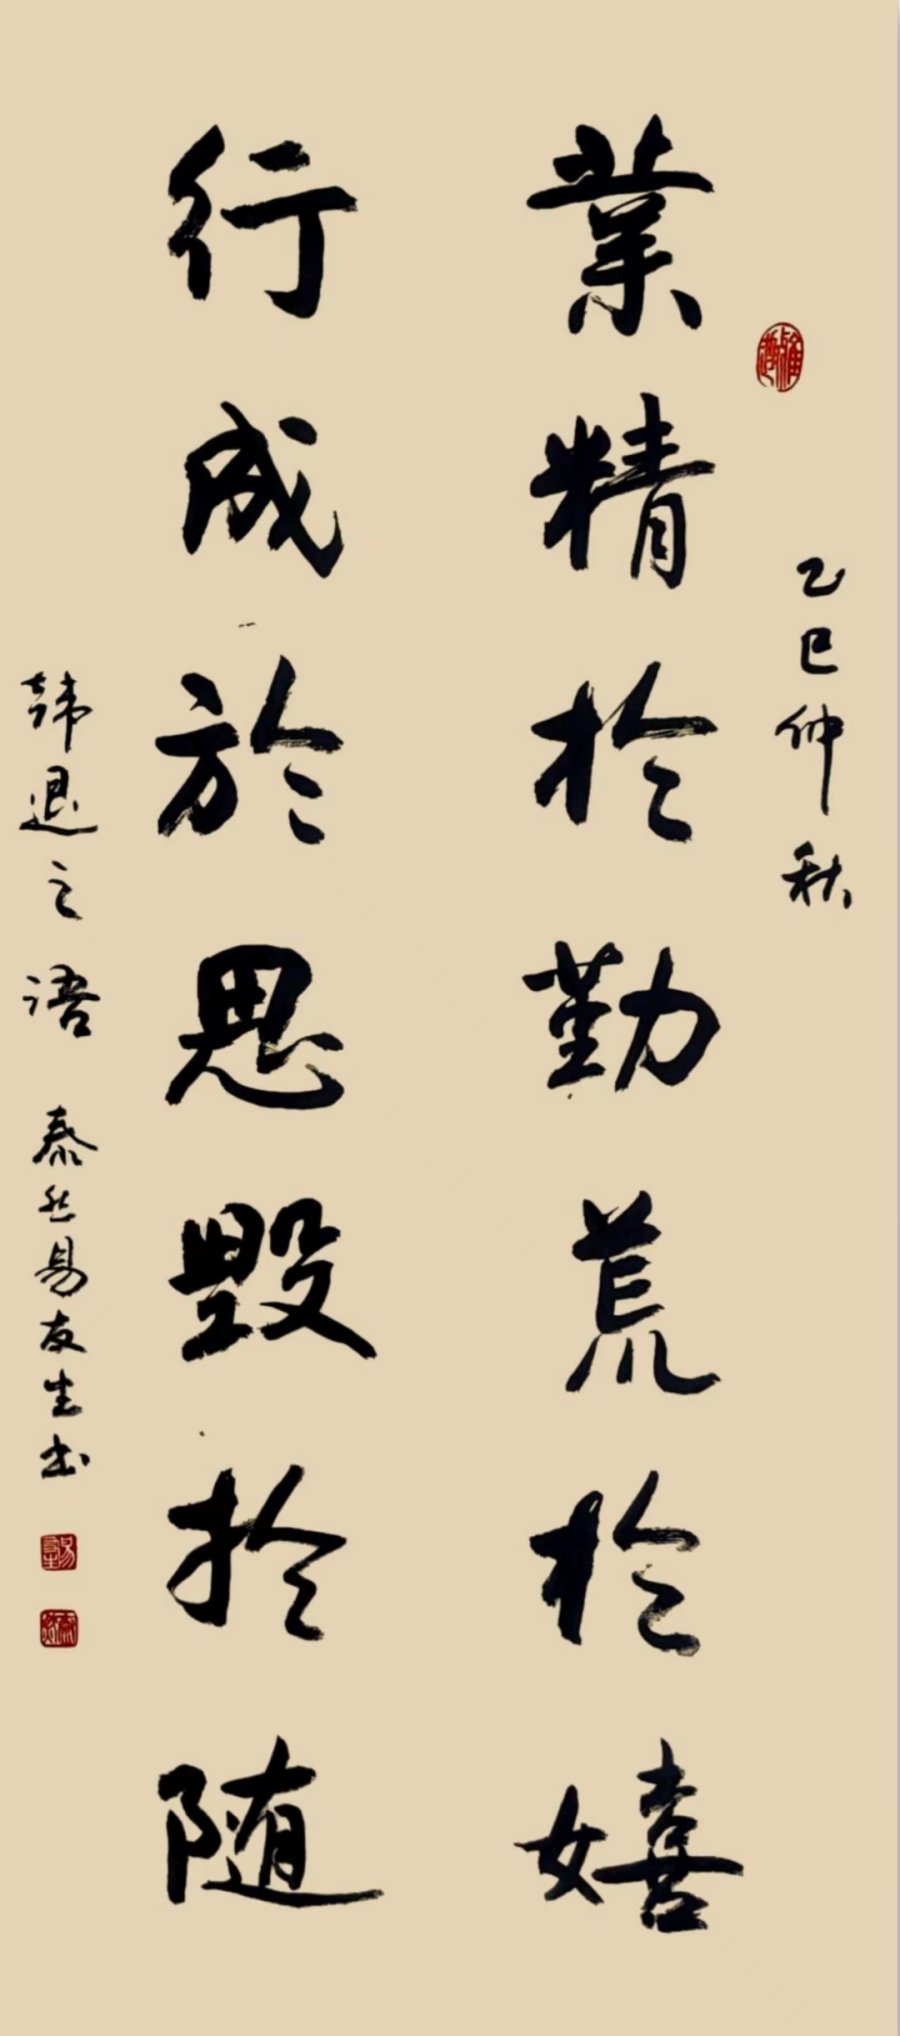 乙巳仲秋
業精於勤荒於嬉
行成於思毁於随
韩退之语 泰然易友生书